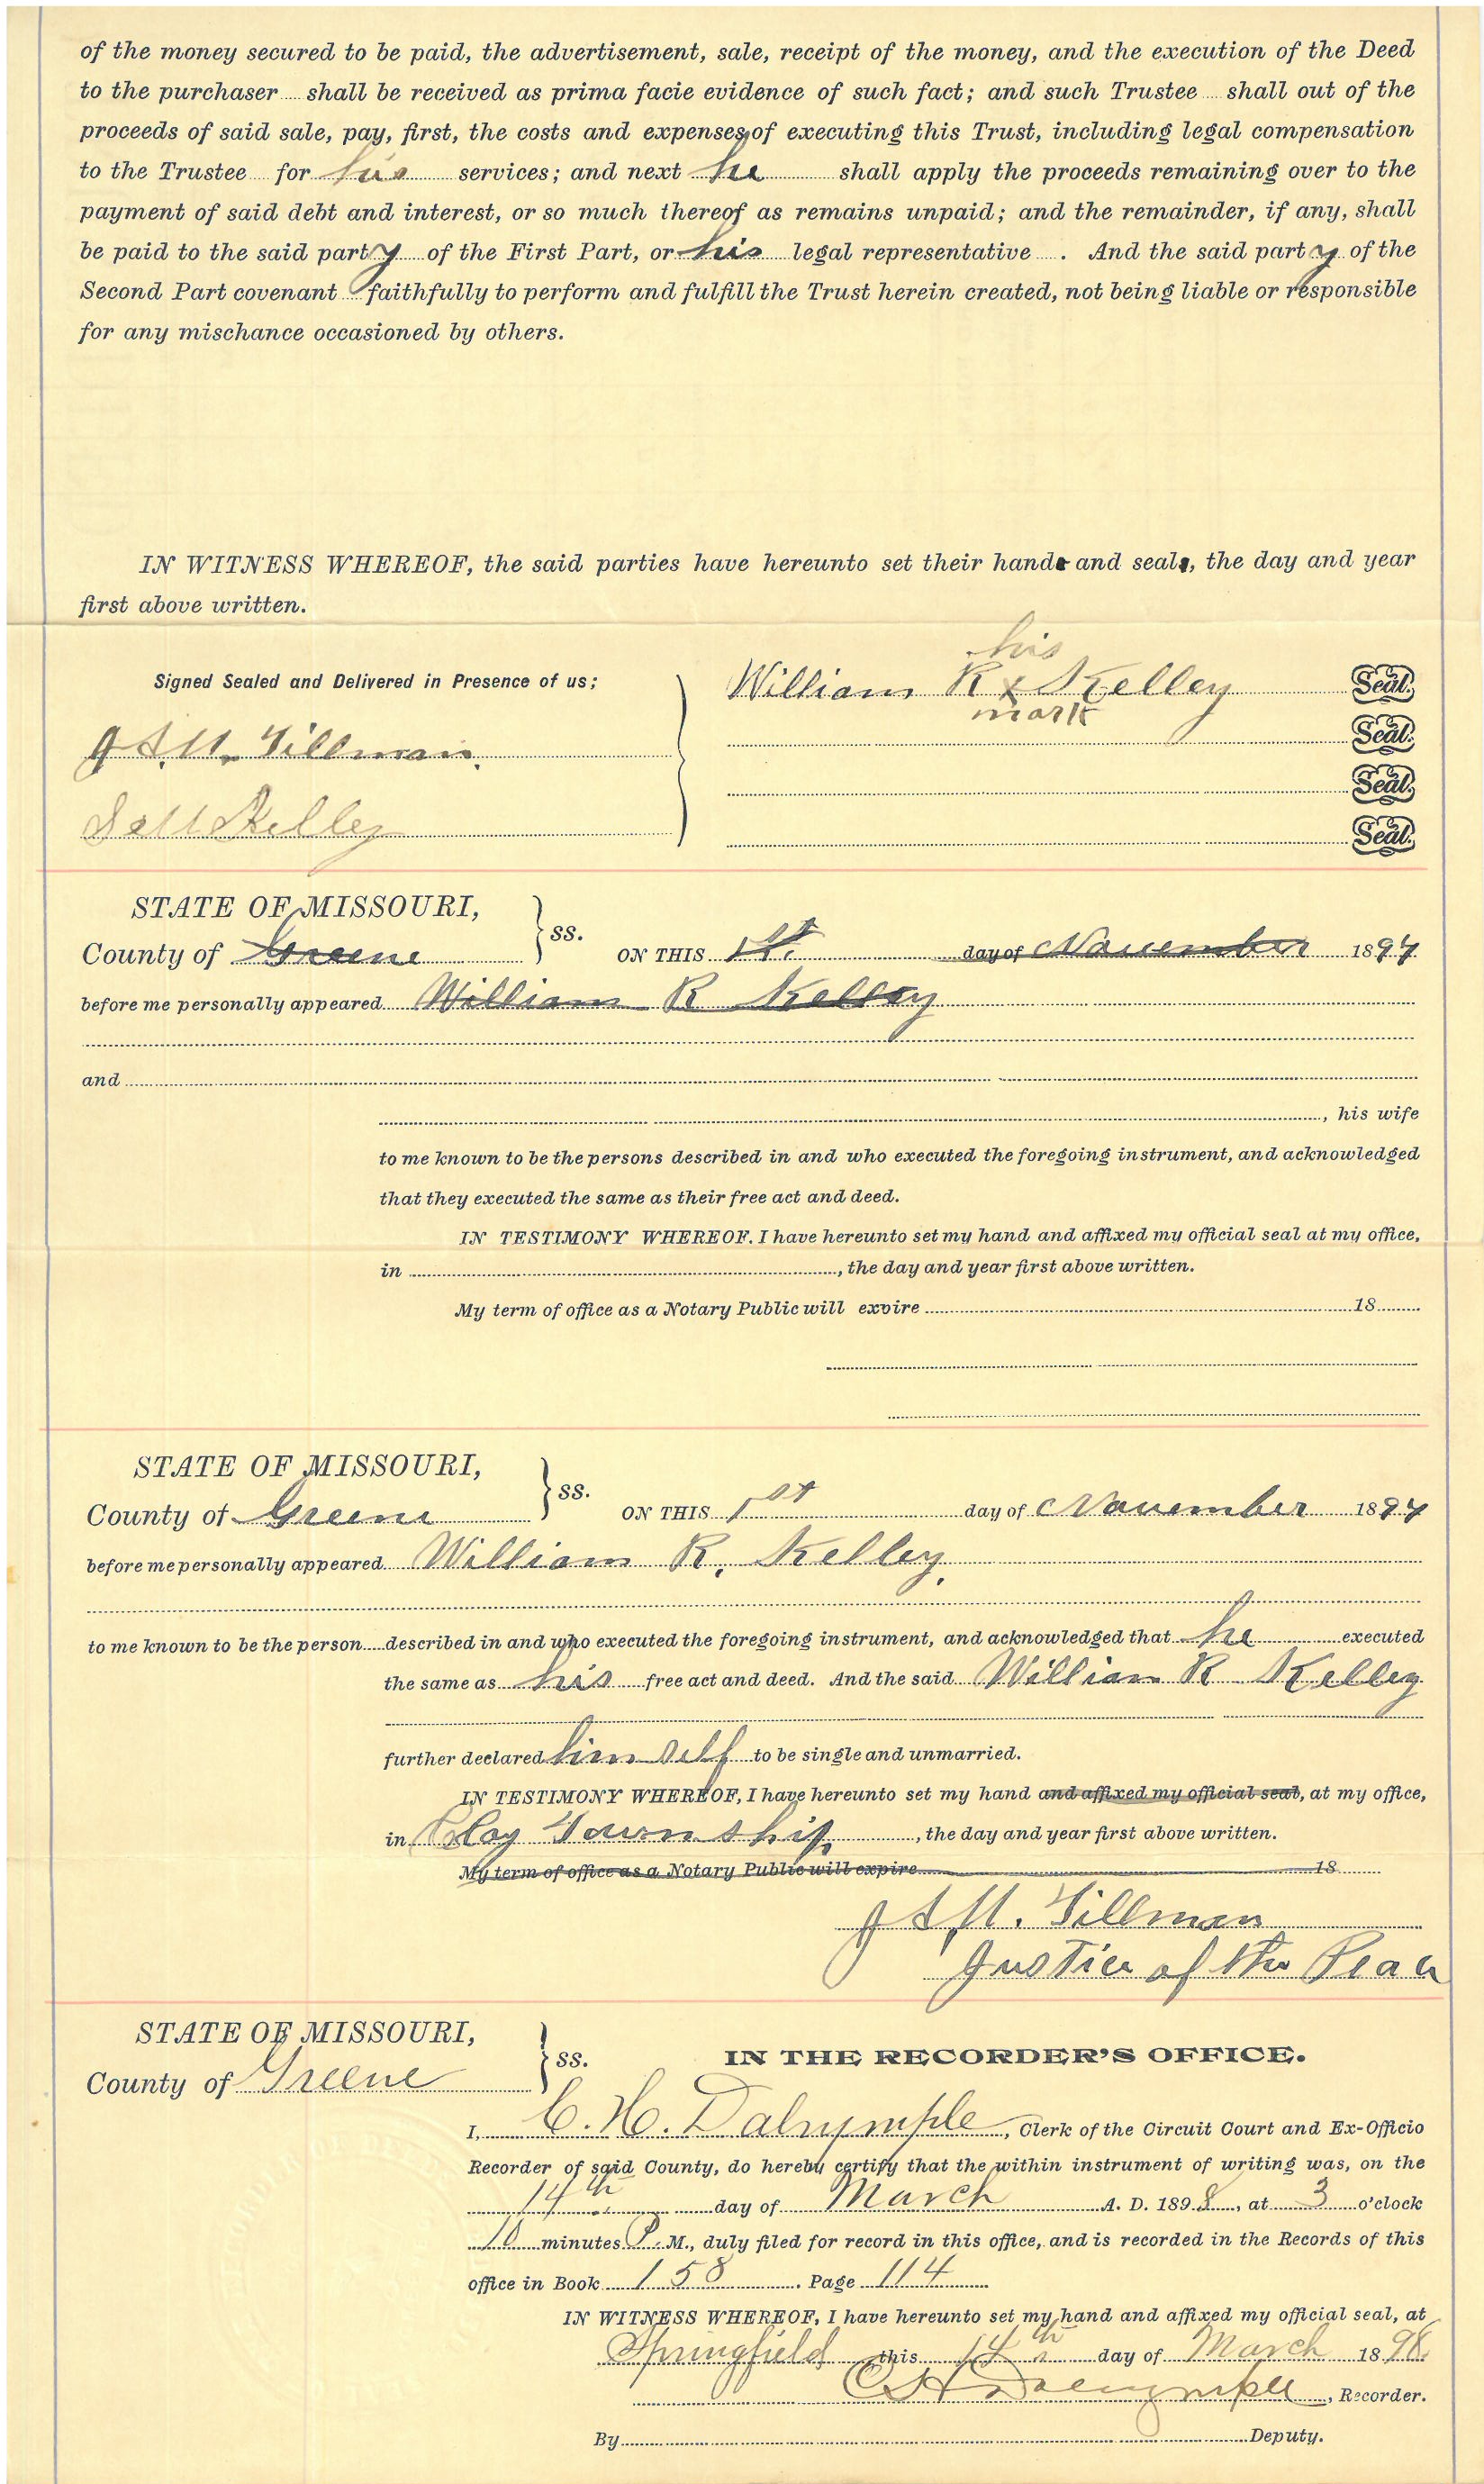 of the money secured to be paid, the advertisement, sale, receipt of the money, and the execution of the Deed
to the purchaser shall be received as prima facie evidence of such fact; and such Trustee shall out of the
proceeds of said sale, pay, first, the costs and expenses of executing this Trust, including legal compensation
to the Trustee for his services; and next he shall apply the proceeds remaining over to the
payment of said debt and interest, or so much thereof as remains unpaid; and the remainder, if any, shall
be paid to the said party of the First Part, or his legal representative . And the said party of the
Second Part covenant faithfully to perform and fulfill the Trust herein created, not being liable or responsible
for any mischance occasioned by others.
IN WITNESS WHEREOF, the said parties have hereunto set their hand and seal, the day and year
first above written.
his
Signed Sealed and Delivered in Presence of us;
William R x Kelley Seal.
mark
J. A. M. Tillman. Seal.
Seal.
Kelley Seal.
STATE OF MISSOURI,
County of Greene ss. ON THIS 1st. day of November 1897
before me personally appeared William R Kelley
and
, his wife
to me known to be the persons described in and who executed the foregoing instrument, and acknowledged
that they executed the same as their free act and deed.
IN TESTIMONY WHEREOF. I have hereunto set my hand and affixed my official seal at my office,
in , the day and year first above written.
My term of office as a Notary Public will expire 18
STATE OF MISSOURI,
County of Greene ss. ON THIS 1st day of November 1897
before me personally appeared William R. Kelley.
to me known to be the person described in and who executed the foregoing instrument, and acknowledged that he executed
the same as his free act and deed. And the said William R Kelley
further declared himself to be single and unmarried.
IN TESTIMONY WHEREOF, I have hereunto set my hand and affixed my official seal, at my office,
in Clay Township, the day and year first above written.
My term of office as a Notary Public will expire 18
J. A. M. Tillman
Justice of the Peace
STATE OF MISSOURI,
County of Greene ss. IN THE RECORDER'S OFFICE.
I, C. H. Dalrymple, Clerk of the Circuit Court and Ex-Officio
Recorder of said County, do hereby certify that the within instrument of writing was, on the
14th day of March A. D. 1898, at 3 o'clock
10 minutes P. M., duly filed for record in this office, and is recorded in the Records of this
office in Book 158. Page 114
IN WITNESS WHEREOF, I have hereunto set my hand and affixed my official seal, at
Springfield this 14th day of March 1898.
C H Dalrymple, Recorder.
By Deputy.